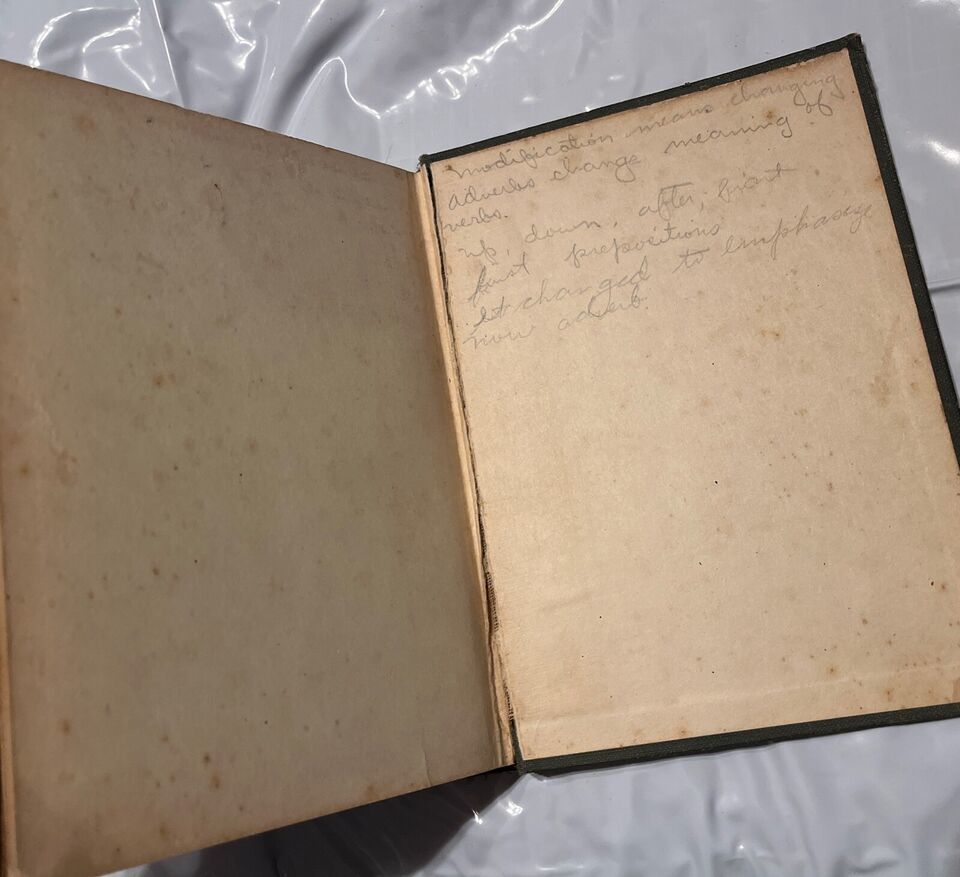 modification means changing
adverbs change meaning of
verbs.
up, down, after, front
first prepositions
changed to emphasize
now adverb.